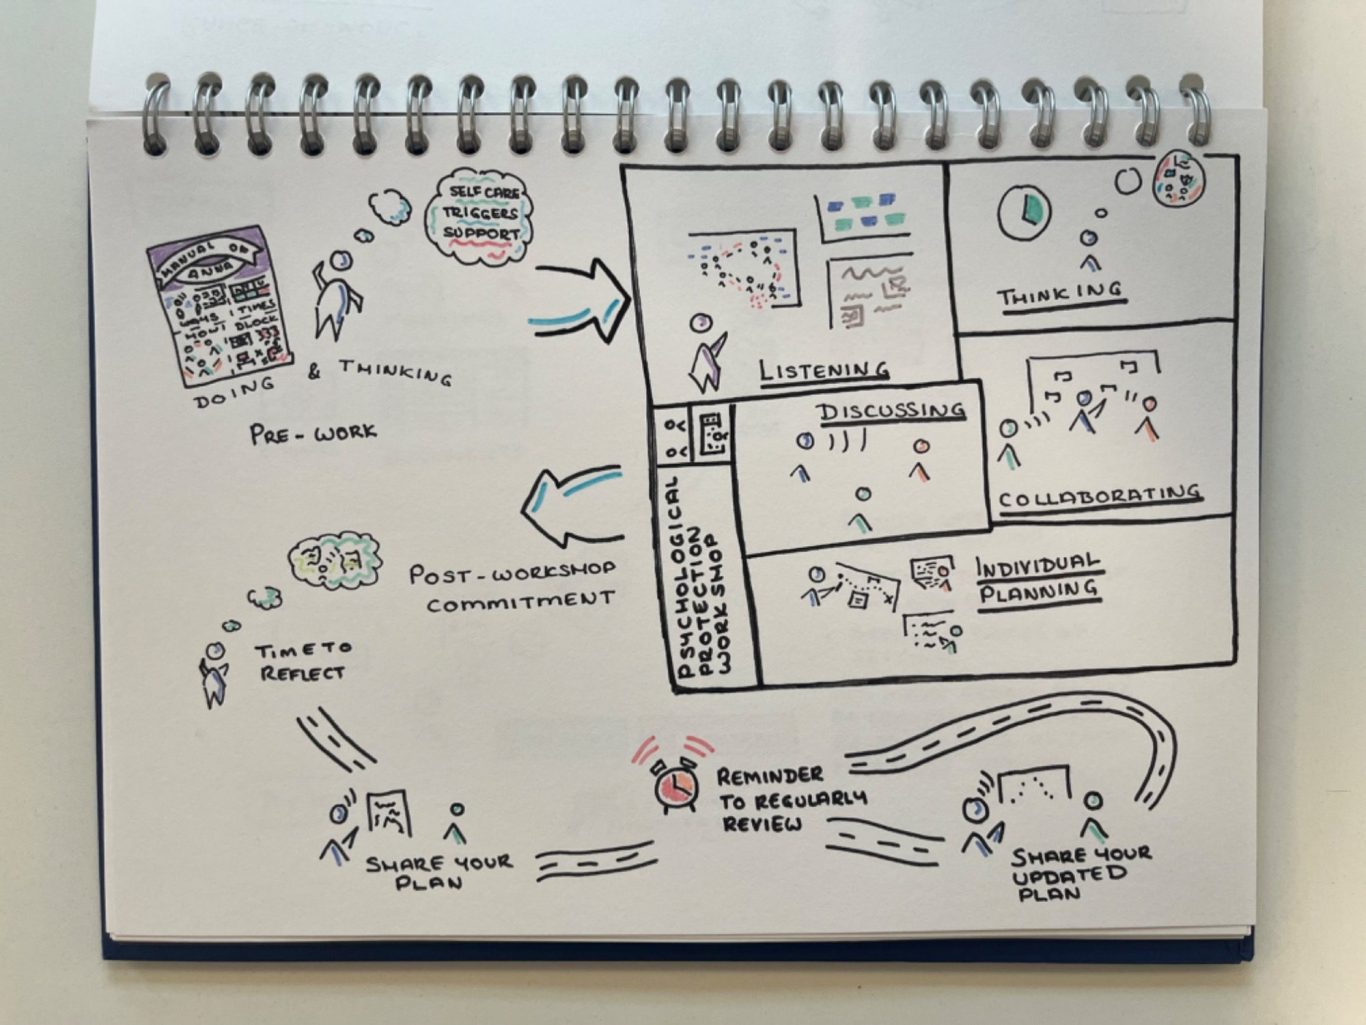 MANUAL OF
ANNA
TIMES
DOING & THINKING
PRE-WORK
SELF CARE
TRIGGERS
SUPPORT
LISTENING
THINKING
DISCUSSING
COLLABORATING
INDIVIDUAL
PLANNING
PSYCHOLOGICAL
PROTECTION
WORKSHOP
POST-WORKSHOP
COMMITMENT
TIME TO
REFLECT
SHARE YOUR
PLAN
REMINDER
TO REGULARLY
REVIEW
SHARE YOUR
UPDATED
PLAN